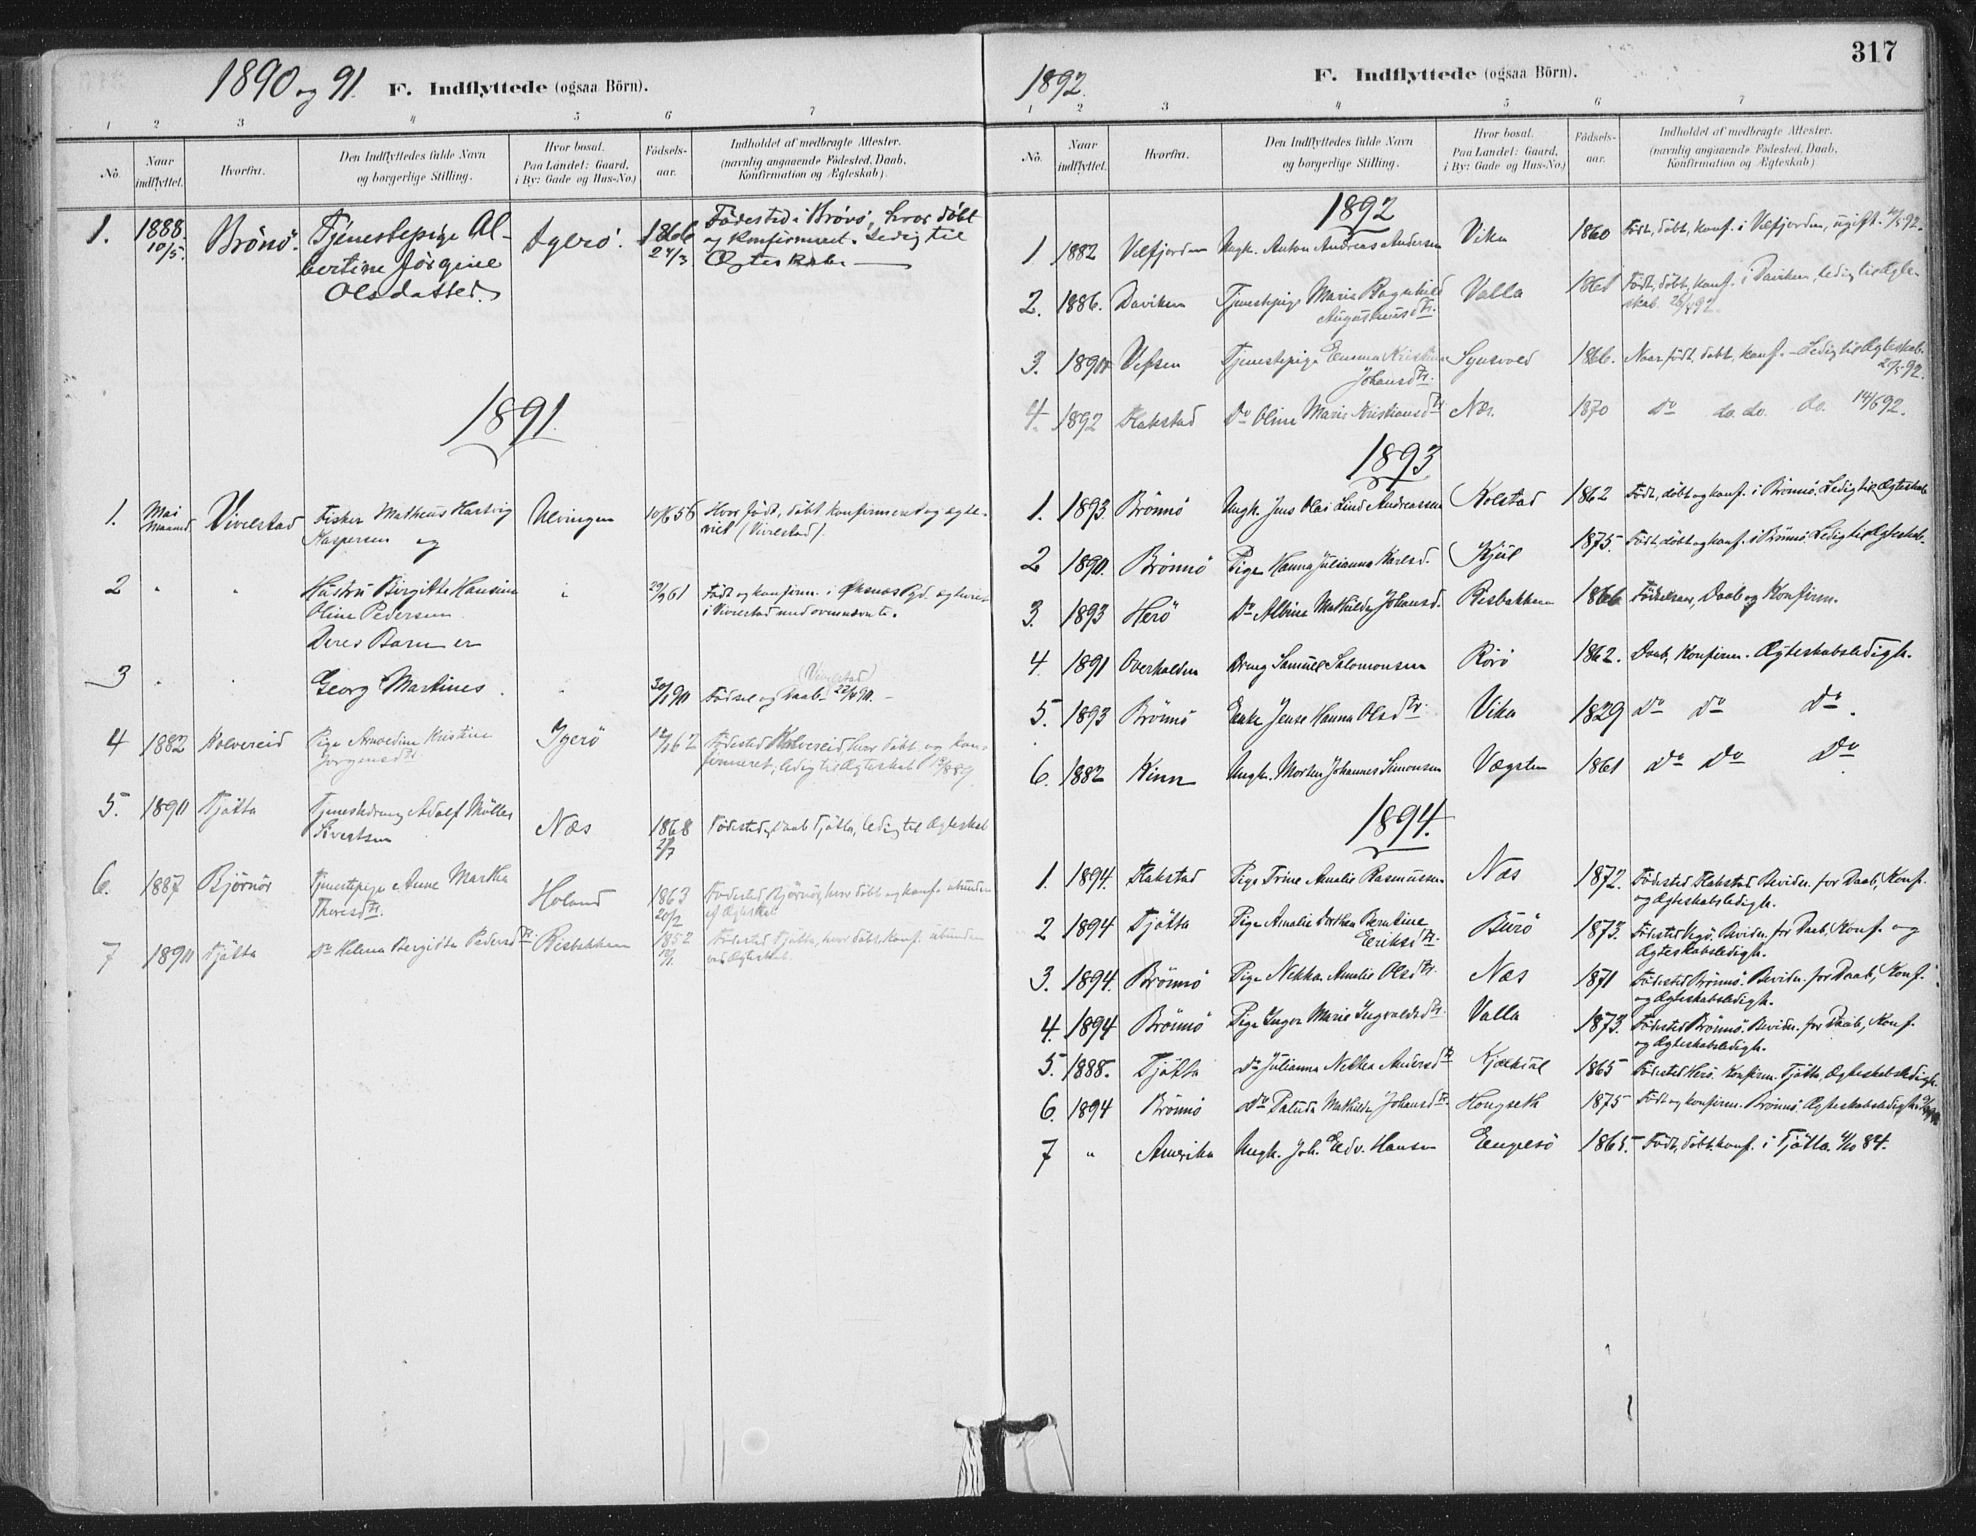 1890 og 91. F. Indflyttede (ogsaa Börn).
1 2 3 4 5 6 7
No. Naar indflyttet. Hvorfra. Den Indflyttedes fulde Navn og borgerlige Stilling. Hvor bosat. Paa Landet: Gaard, i By: Gade og Hus-No.) Födsels-aar. Indholdet af medbragte Attester. (navnlig angaaende Födested, Daab, Konfirmation og Ægteskab)
1. 1888 Brönö. Tjenestepige Al- Igerö. 1866 Födested i Brönö, hvor döbt
10/5. bertine Jörgine 24/3 og konfirmeret. Ledig til
Olsdatter. Ægteskab
1891.
1. Mai Vivelstad Fisker Matheus Hartvig Ulvingen 10/6 56 Hvor födt, döbt konfirmeret og ægte-
Maaned Kaspersen og viet (Vivelstad).
2 " " Hustru Birgitte Hansine " 29/9 61 Födt og konfirm. i Öksnæs Pgd. og viet
Oline Pedersen i Vivelstad med ovennævnte.
Deres Barn er
3 " " Georg Martines. " 30/1 90 Födsel og Daab (Vivelstad) 27/4 90.
4 1882 Kolvereid Pige Arnoldine Kristine Igerö 12/1 62 Födested Kolvereid, hvor döbt og kon-
Jörgensdtr firmeret, ledig til Ægteskab
5. 1890 Tjötta Tjenestedreng Adolf Möller Næs 1868 Födested, Daab Tjötta, ledig til Ægteskab
Sivertsen
6. 1887 Björnör Tjenestepige Anne Martha Holand 1863 Födested Björnör, hvor döbt og konf. ubunden
Thoresdtr. 20/2 af Ægteskab
7 1890 Tjötta Do Helena Bergitta Pedersdtr. Risbakken 1852 Födested Tjötta, hvor döbt, konf. ubunden
ved Ægteskab.
317
1892. F. Indflyttede (ogsaa Börn).
1 2 3 4 5 6 7
No. Naar indflyttet. Hvorfra. Den Indflyttedes fulde Navn og borgerlige Stilling. Hvor bosat. Paa Landet: Gaard, i By: Gade og Hus-No.) Födsels-aar. Indholdet af medbragte Attester. (navnlig angaaende Födested, Daab, Konfirmation og Ægteskab)
1892
1 1882 Velfjorden Ungk. Anton Andreas Andersen Vika 1860 Födt, döbt, konf. i Velfjorden, ugift.
2. 1886. Daviken Tjenestepige Marie Ragnhild Valla 1861 Födt, döbt, konf. i Daviken, ledig til Ægte-
Augustinusdtr. skab
3. 1890 Vefsen Tjenestepige Emma Kristine 1866. Naar födt, döbt, konf. - Ledig til Ægteskab.
Johansdtr.
4. 1892 Stakstad Do Oline Marie Kristiansdtr Næs. 1870 Do do. do. do. 14/6 92.
1893
1. 1893. Brönnö Ungk. Jens Olai Lind Andreassen Kolstad 1862 Födt, döbt og konf. i Brönnö. Ledig til Ægteskab
2 1890. Brönnö Pige Hanna Julianna Karlsd. 1875. Födt, döbt og konf. i Brönnö. Ledig til Ægteskab.
3. 1893 Herö Do Albine Mathilde Johansd. Risbakken 1866 Födselsaar, Daab og Konfirm.
4. 1891 Overhalden Dreng Samuel Salomonsen Rörö 1862. Daab, Konfirm. Ægteskabsledigh.
5. 1893 Brönnö Enke Jense Hanna Olsdtr. Vika 1829 Do Do Do.
6. 1882 Kinn Ungk. Morten Johannes Simonsen Vægsten 1861 Do Do Do
1894.
1. 1894. Stakstad Pige Trine Amalie Rasmussen Næs 1872. Födested Stakstad. Bevidn. for Daab, Konf.
og Ægteskabsledigh.
2 1894 Tjötta Pige Amalie Dorthea Berntine Burö 1873. Födested Vegö. Bevidn. for Daab, Konf. og
Eriksdtr. Ægteskabsledigh.
3. 1894. Brönnö Pige Nekka Amalie Olsdtr. Næs 1871 Födested Brönnö. Bevidn. for Daab, Konf.
og Ægteskabsledigh.
4. 1894 Brönnö Pige Inger Marie Ingvaldsdtr. Valla 1873. Födested Brönnö. Bevidn. for Daab, Konf.
og Ægteskabsledigh.
5. 1888. Tjötta Do Julianna Nekkea Andersdtr Kjælksöl 1865 Födested Herö. Konfirm. Tjötta, Ægteskabsledigh.
6. 1894 Brönnö Do Paluda Mathilde Johansdtr. Hongseth 1875 Födt og konfirm. Brönnö. Ægteskabsledigh.
7 " Amerika Ungk. Joh. Edv. Hansen Engelsö 1865. Födt, döbt, konf. i Tjötta. 4/10 84.